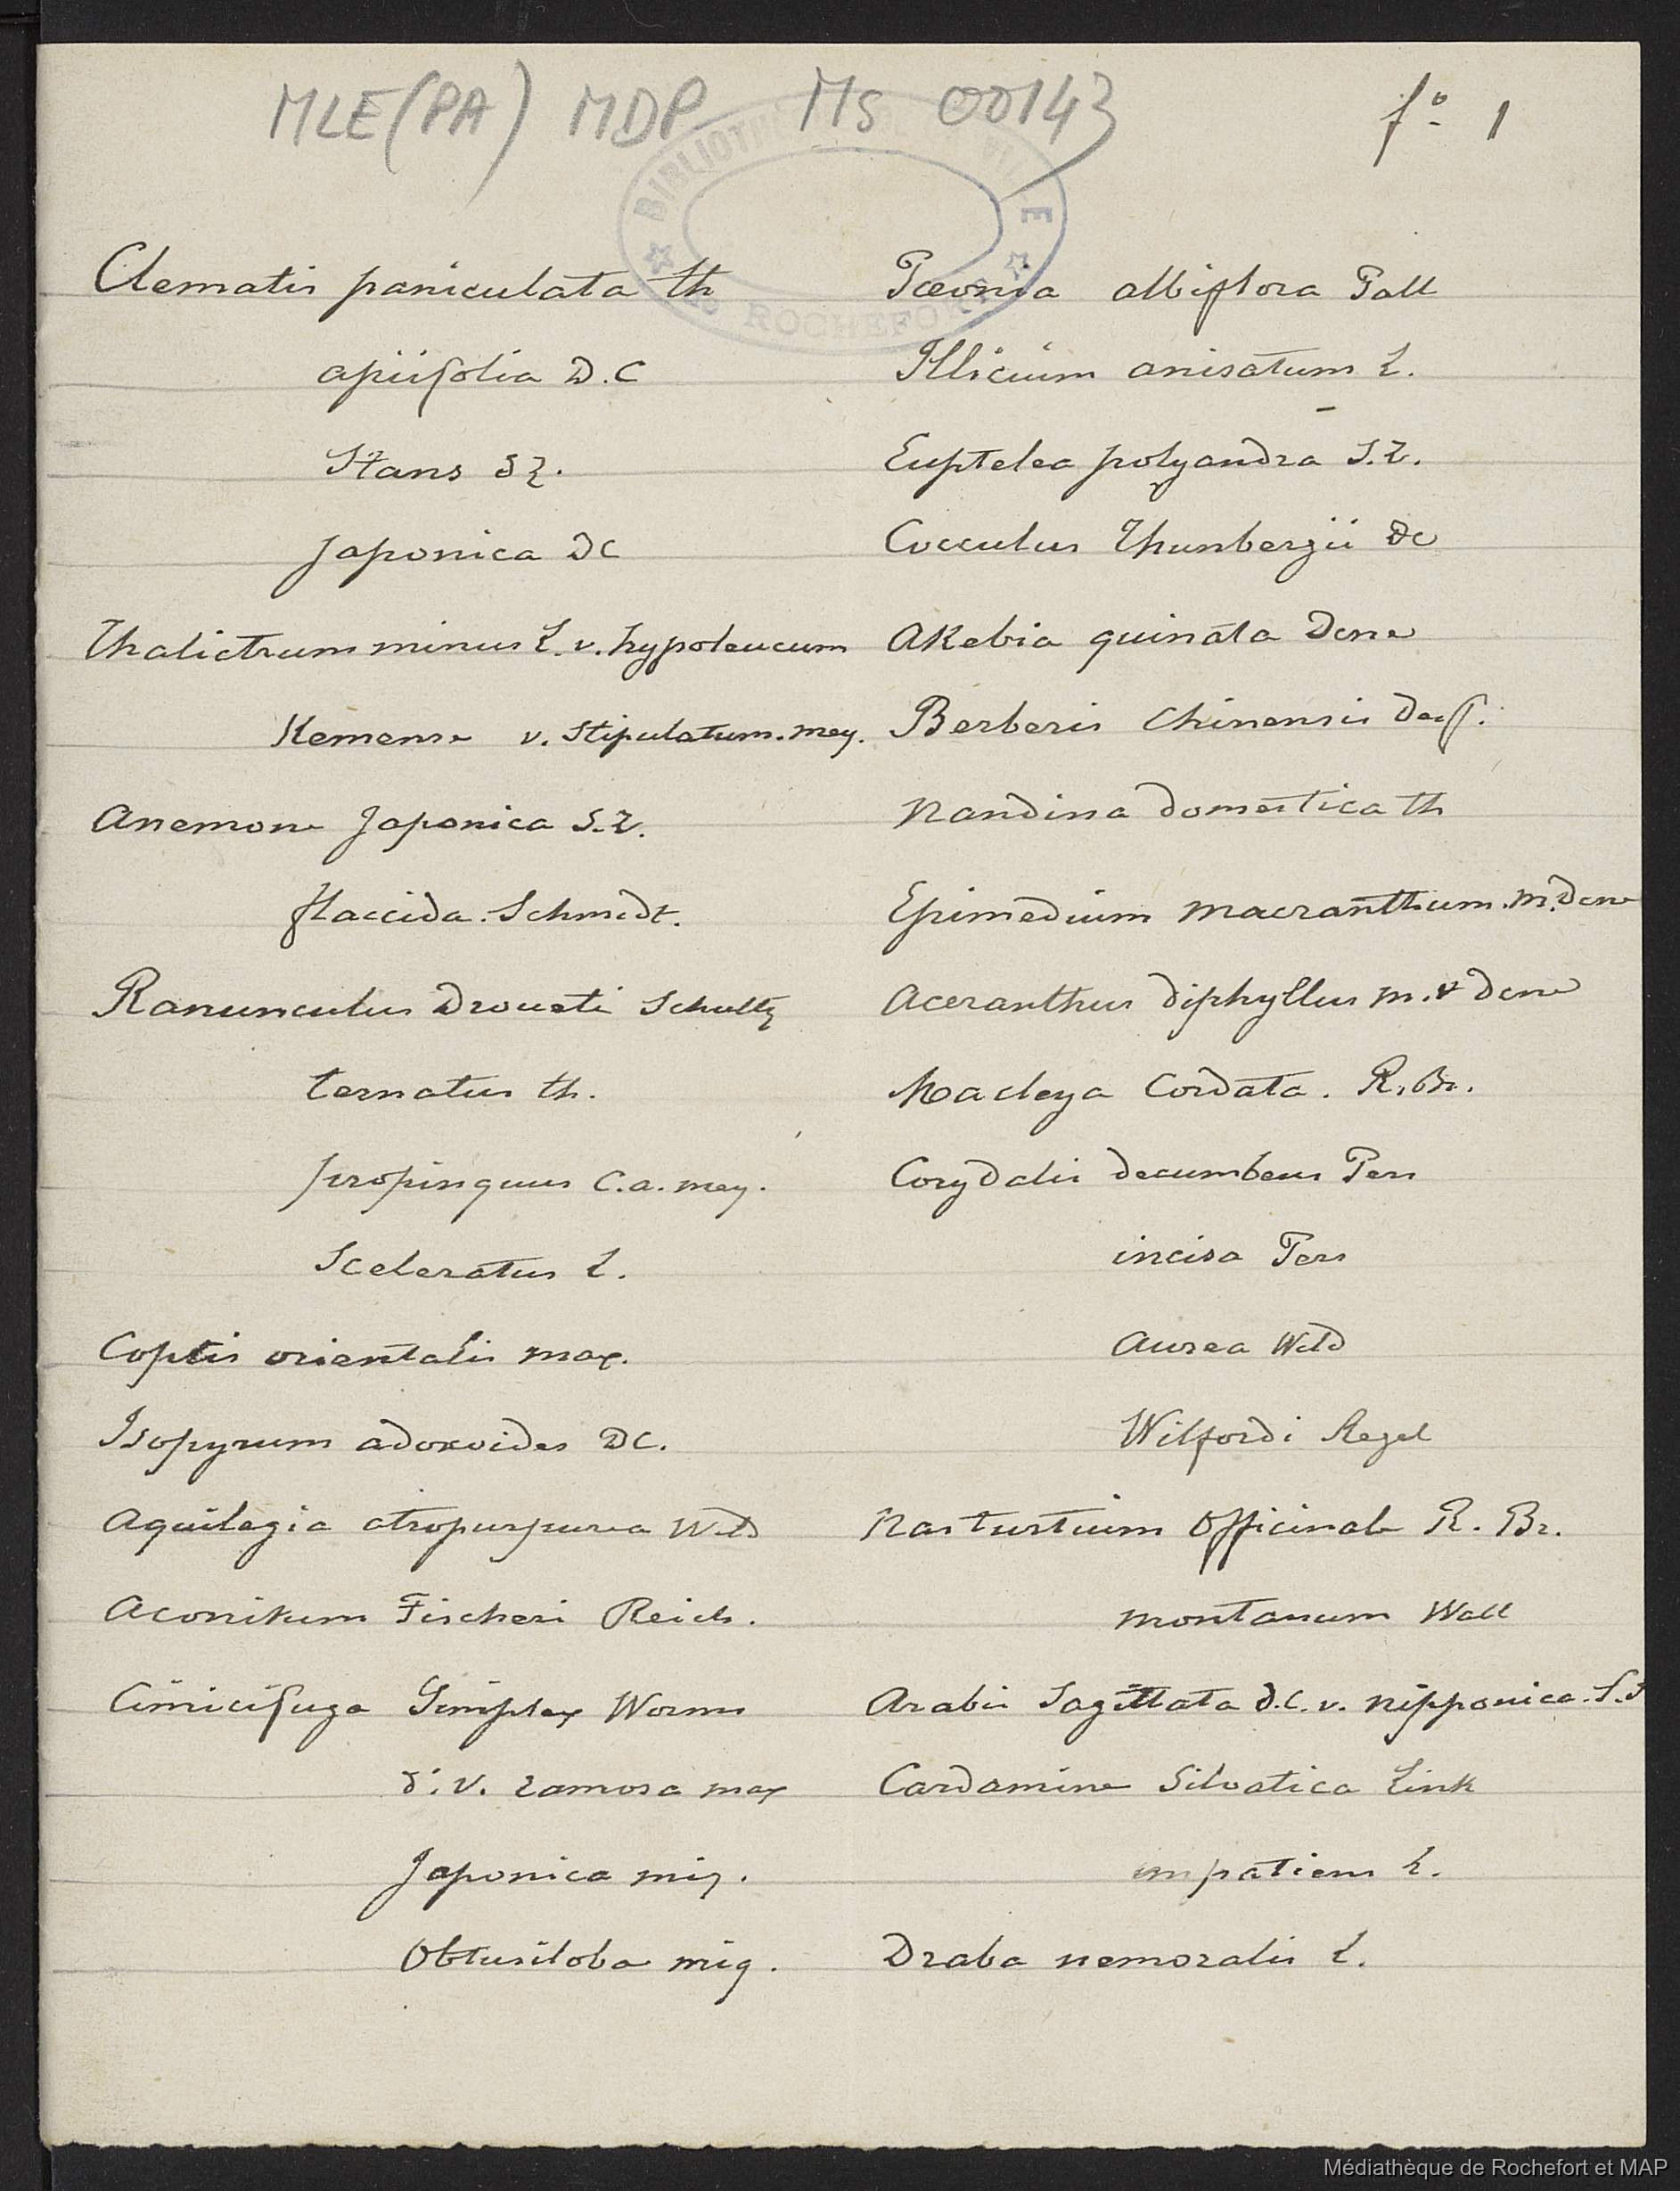 MLE(PA) MDP Ms 00143
fº 1
BIBLIOTH VILLE
ROCHEFORT
Clematis paniculata th
apiifolia D.C
Stans SZ.
Japonica DC
Thalictrum minus L. v. hypoleucum
Kemense v. Stipulatum. mey.
Anemone Japonica S.Z.
flaccida. Schmidt.
Ranunculus Droueti Schultz
ternatus th.
propinquus C.a. mey.
Sceleratus L.
Coptis orientalis max.
Isopyrum adoxoides DC.
Aquilegia atropurpurea Wild
Aconitum Fischeri Reich.
Cimicifuga Simplex Worms
d: v. ramosa max
Japonica miq.
Obtusiloba miq.
Pæonia albiflora Pall
Illicium anisatum L.
Euptelea polyandra S.Z.
Cocculus Thunbergii Dc
Akebia quinata Dcne
Berberis Chinensis Desf.
Nandina domestica th
Epimedium macranthum. m. Dcne
Aceranthus diphyllus m. & dcne
Macleya Cordata. R. Br.
Corydalis decumbens Pers
incisa Pers
Aurea Wild
Wilfordi Regel
Nasturtium Officinale R. Br.
montanum Wall
Arabis Sagittata d.C. v. nipponica. S.
Cardamine Silvatica Link
impatiens L.
Draba nemoralis L.
Médiathèque de Rochefort et MAP